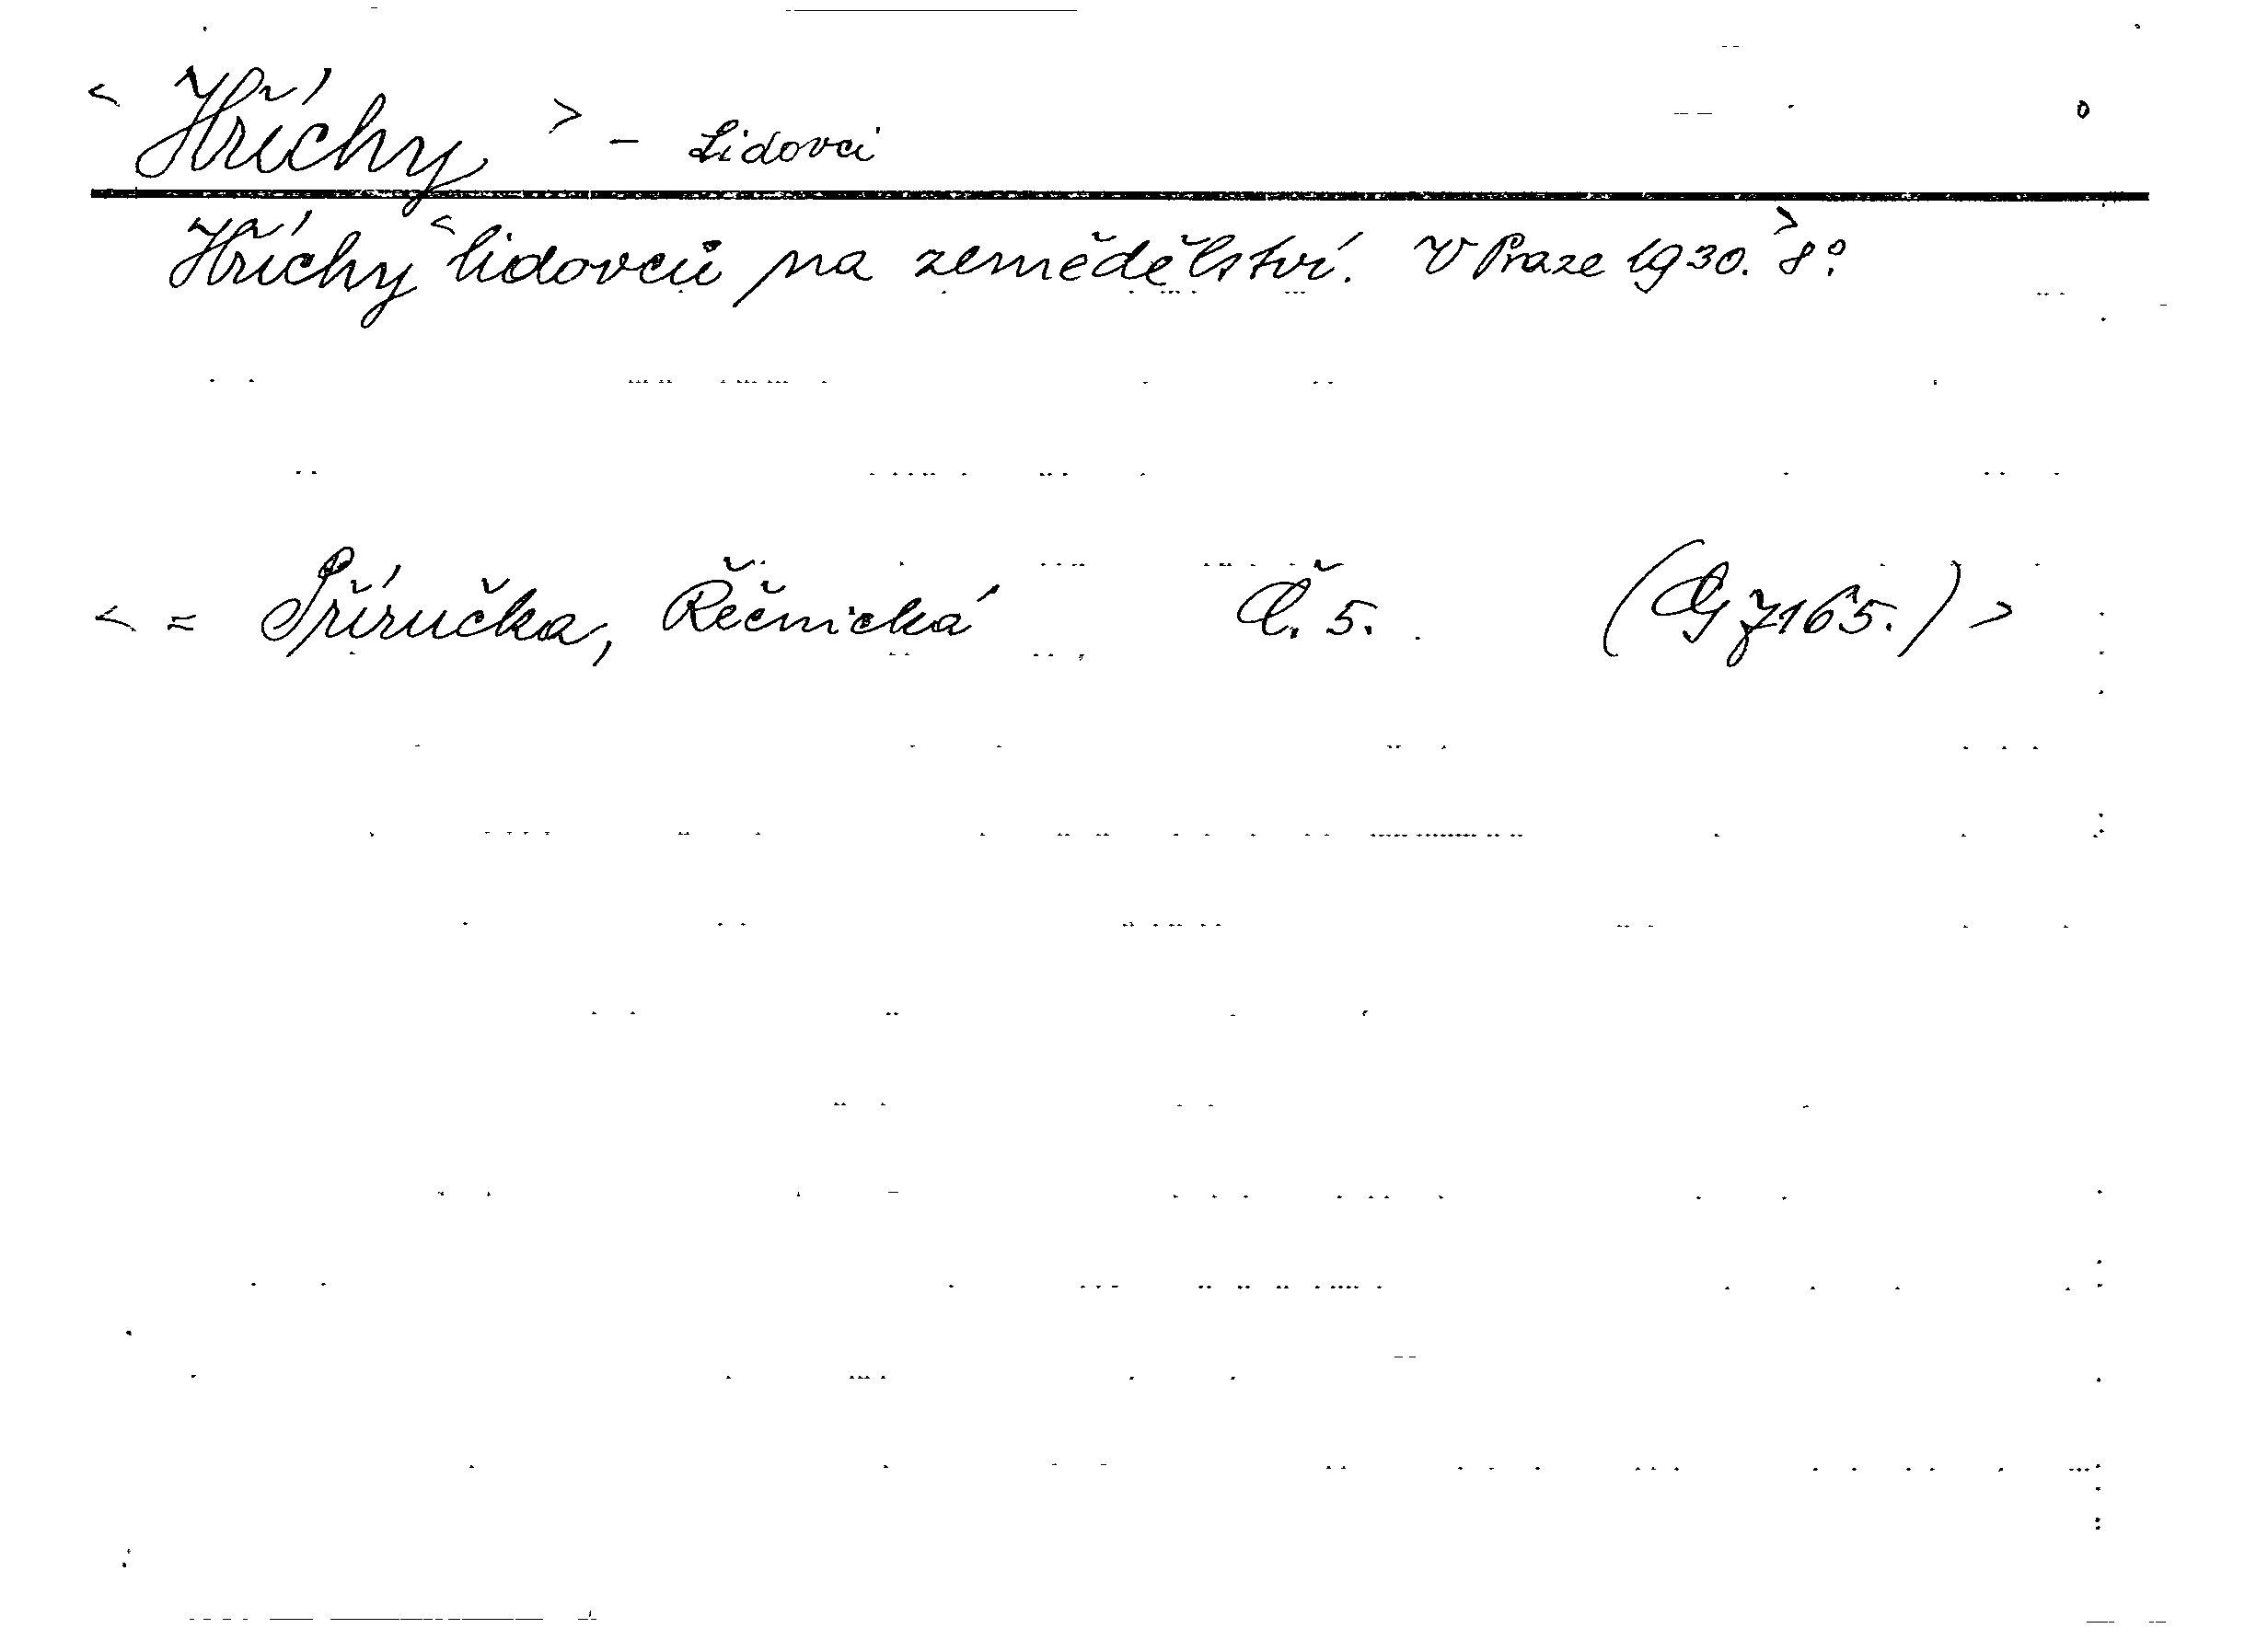 < Hříchy > - Lidovci
Hříchy < lidovců na zemědělství. V Praze 1930. > 8°.
< = Příručka, Řečnická Č. 5. (G 7165.) >